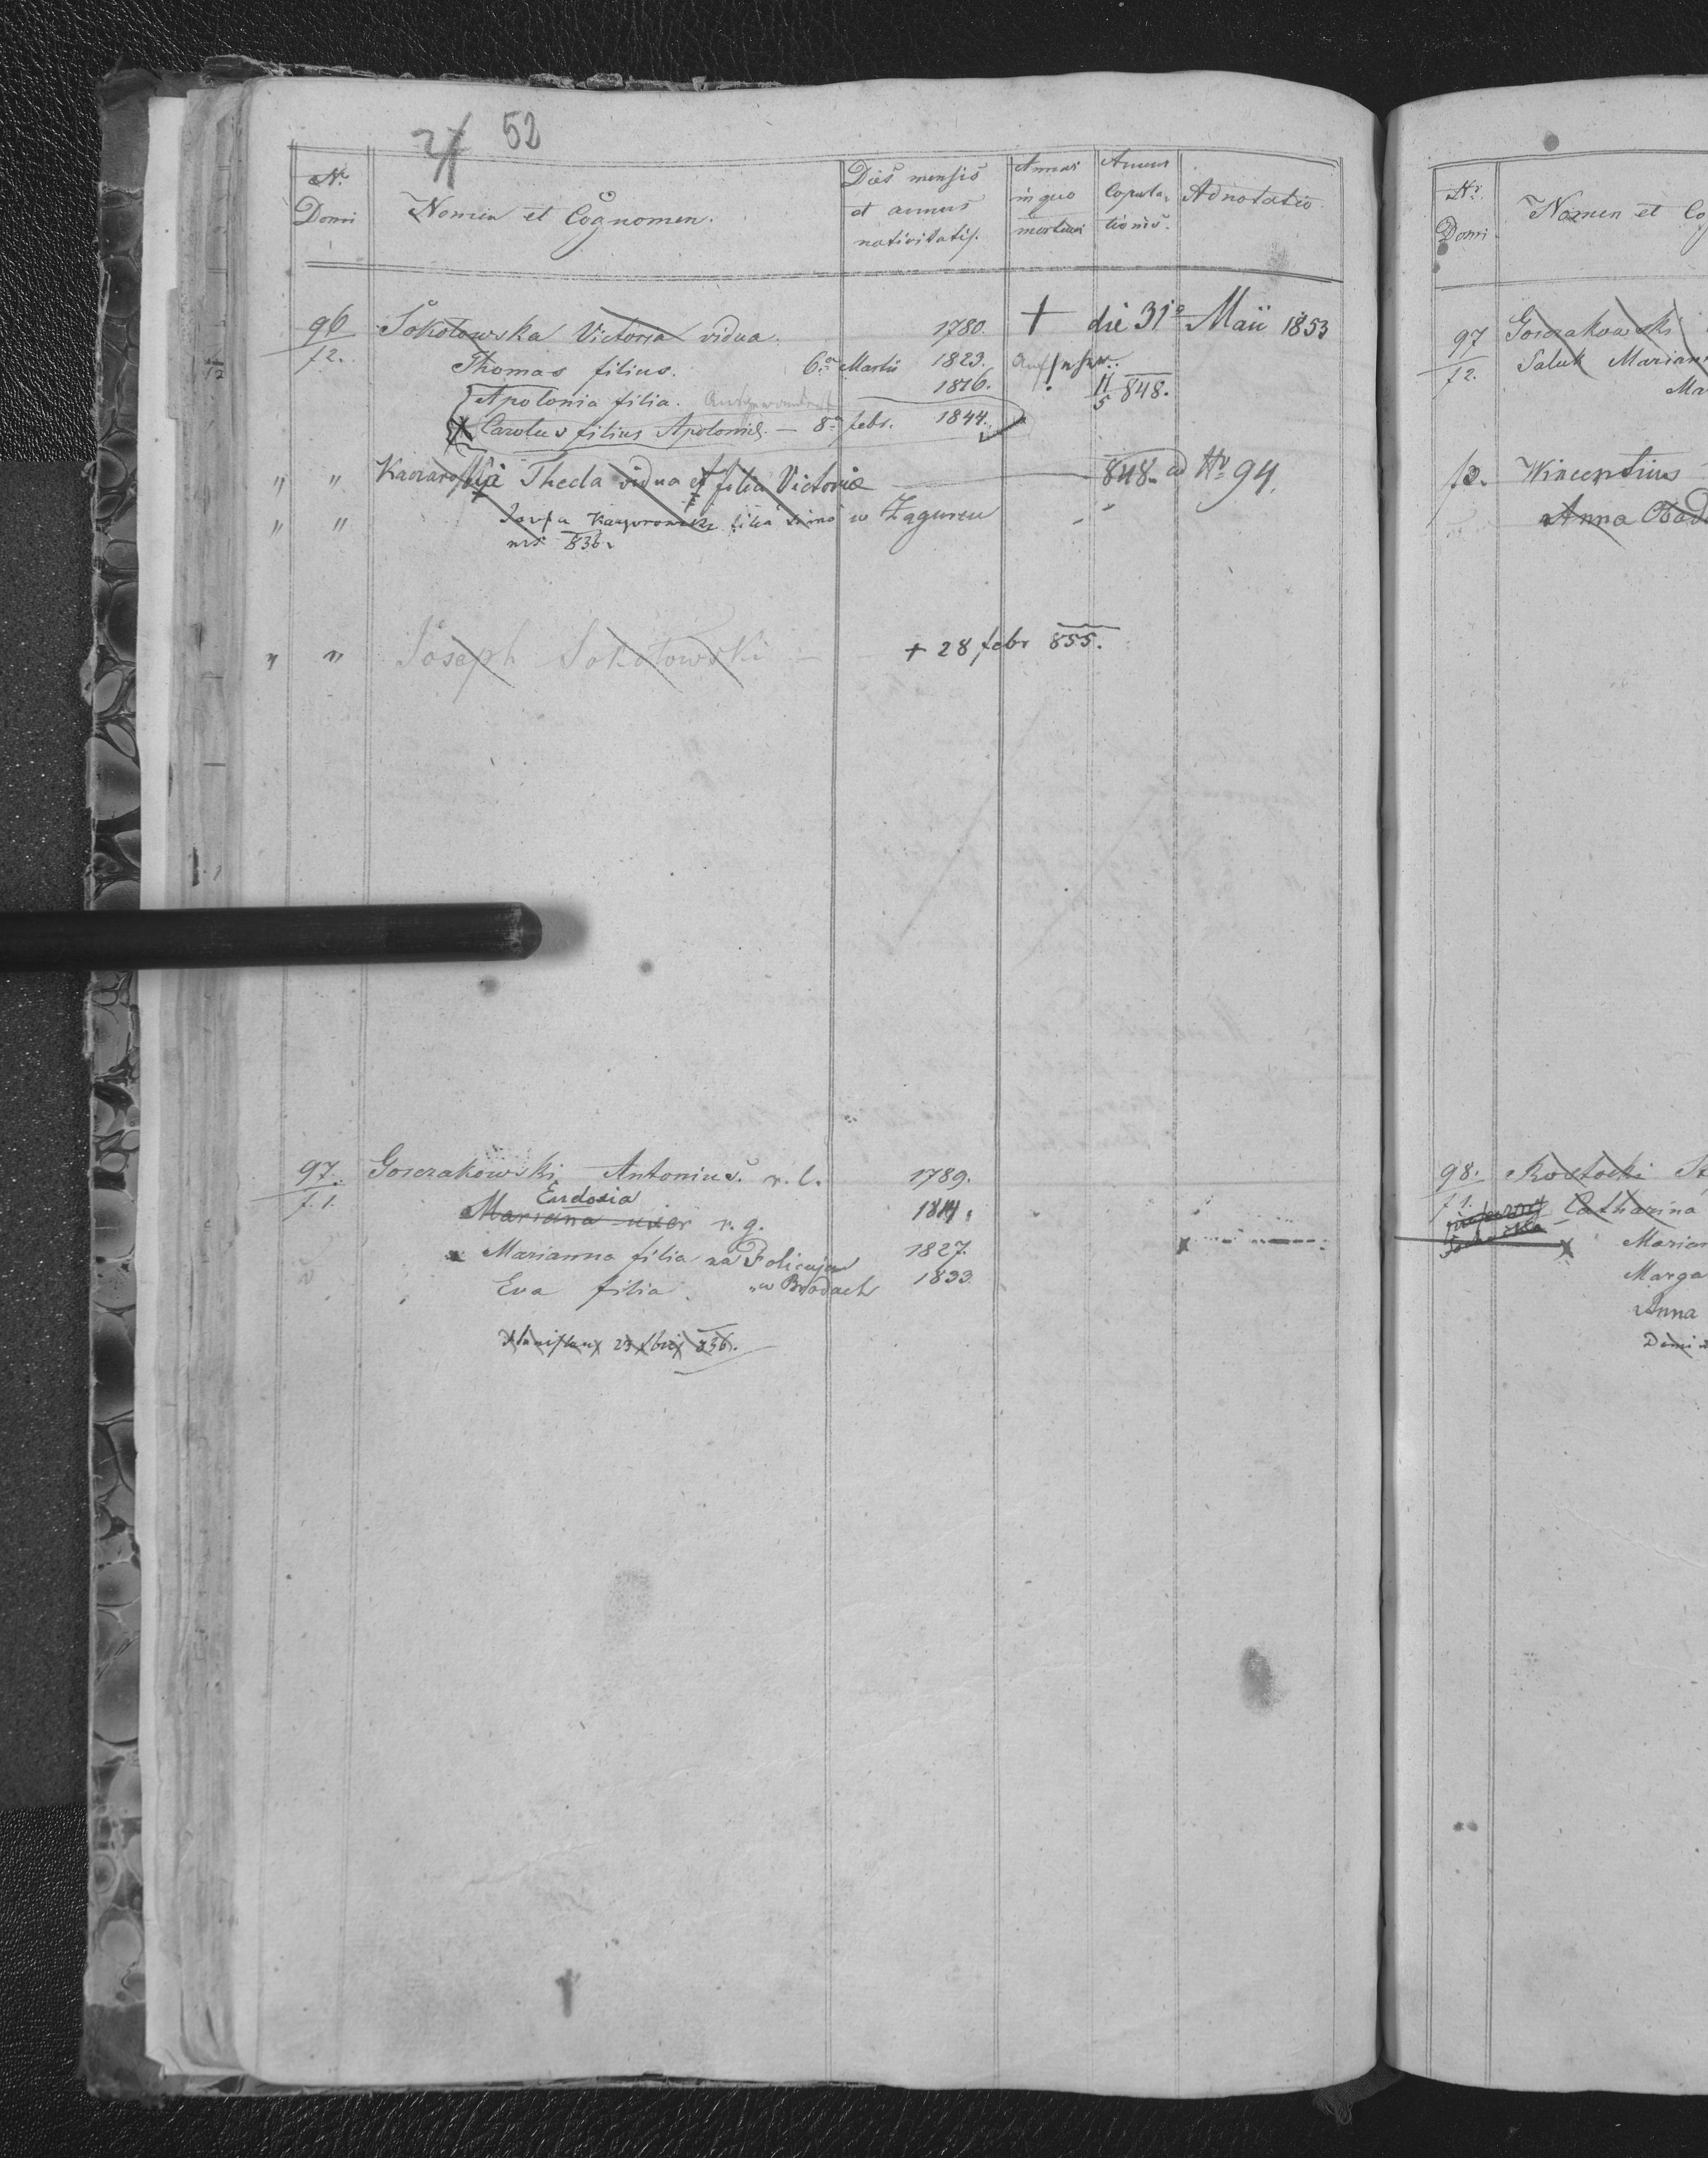 52
Nr. Domi
Nomen et Cognomen.
Dies mensis et annus nativitatis.
Annus in quo mortuus
Annus Copulationis.
Adnotatio.
96 Sokołowska Victoria vidua. 1780. + die 31a Maii 1853
f2. Thomas filius. 6a Martii 1823.
Apolonia filia. 1816. 11/5 848.
Carolus filius Apoloniae. — 8a febr. 1844.
" " Thecla vidua et filia Victoriae — 848. ad Nr 94.
" " filia w Zagurzu
836.
" " Joseph Sokołowski — + 28 febr 855.
97. Gorczakowski Antonius. r. l. 1789.
f.1. Eudosia
Mariana uxor r. g. 1814.
x Marianna filia na Policyi 1827. x
Eva filia. w Brodach 1833.
Stanislaus 23 836.
Nr. Domi
Nomen et Co
97 Gorczakowski
f2. Saluk Mariann
Ma
f2. Wincentius
Anna
98. Rostocki St
f1. Catharina
x Marian
Marga
Anna